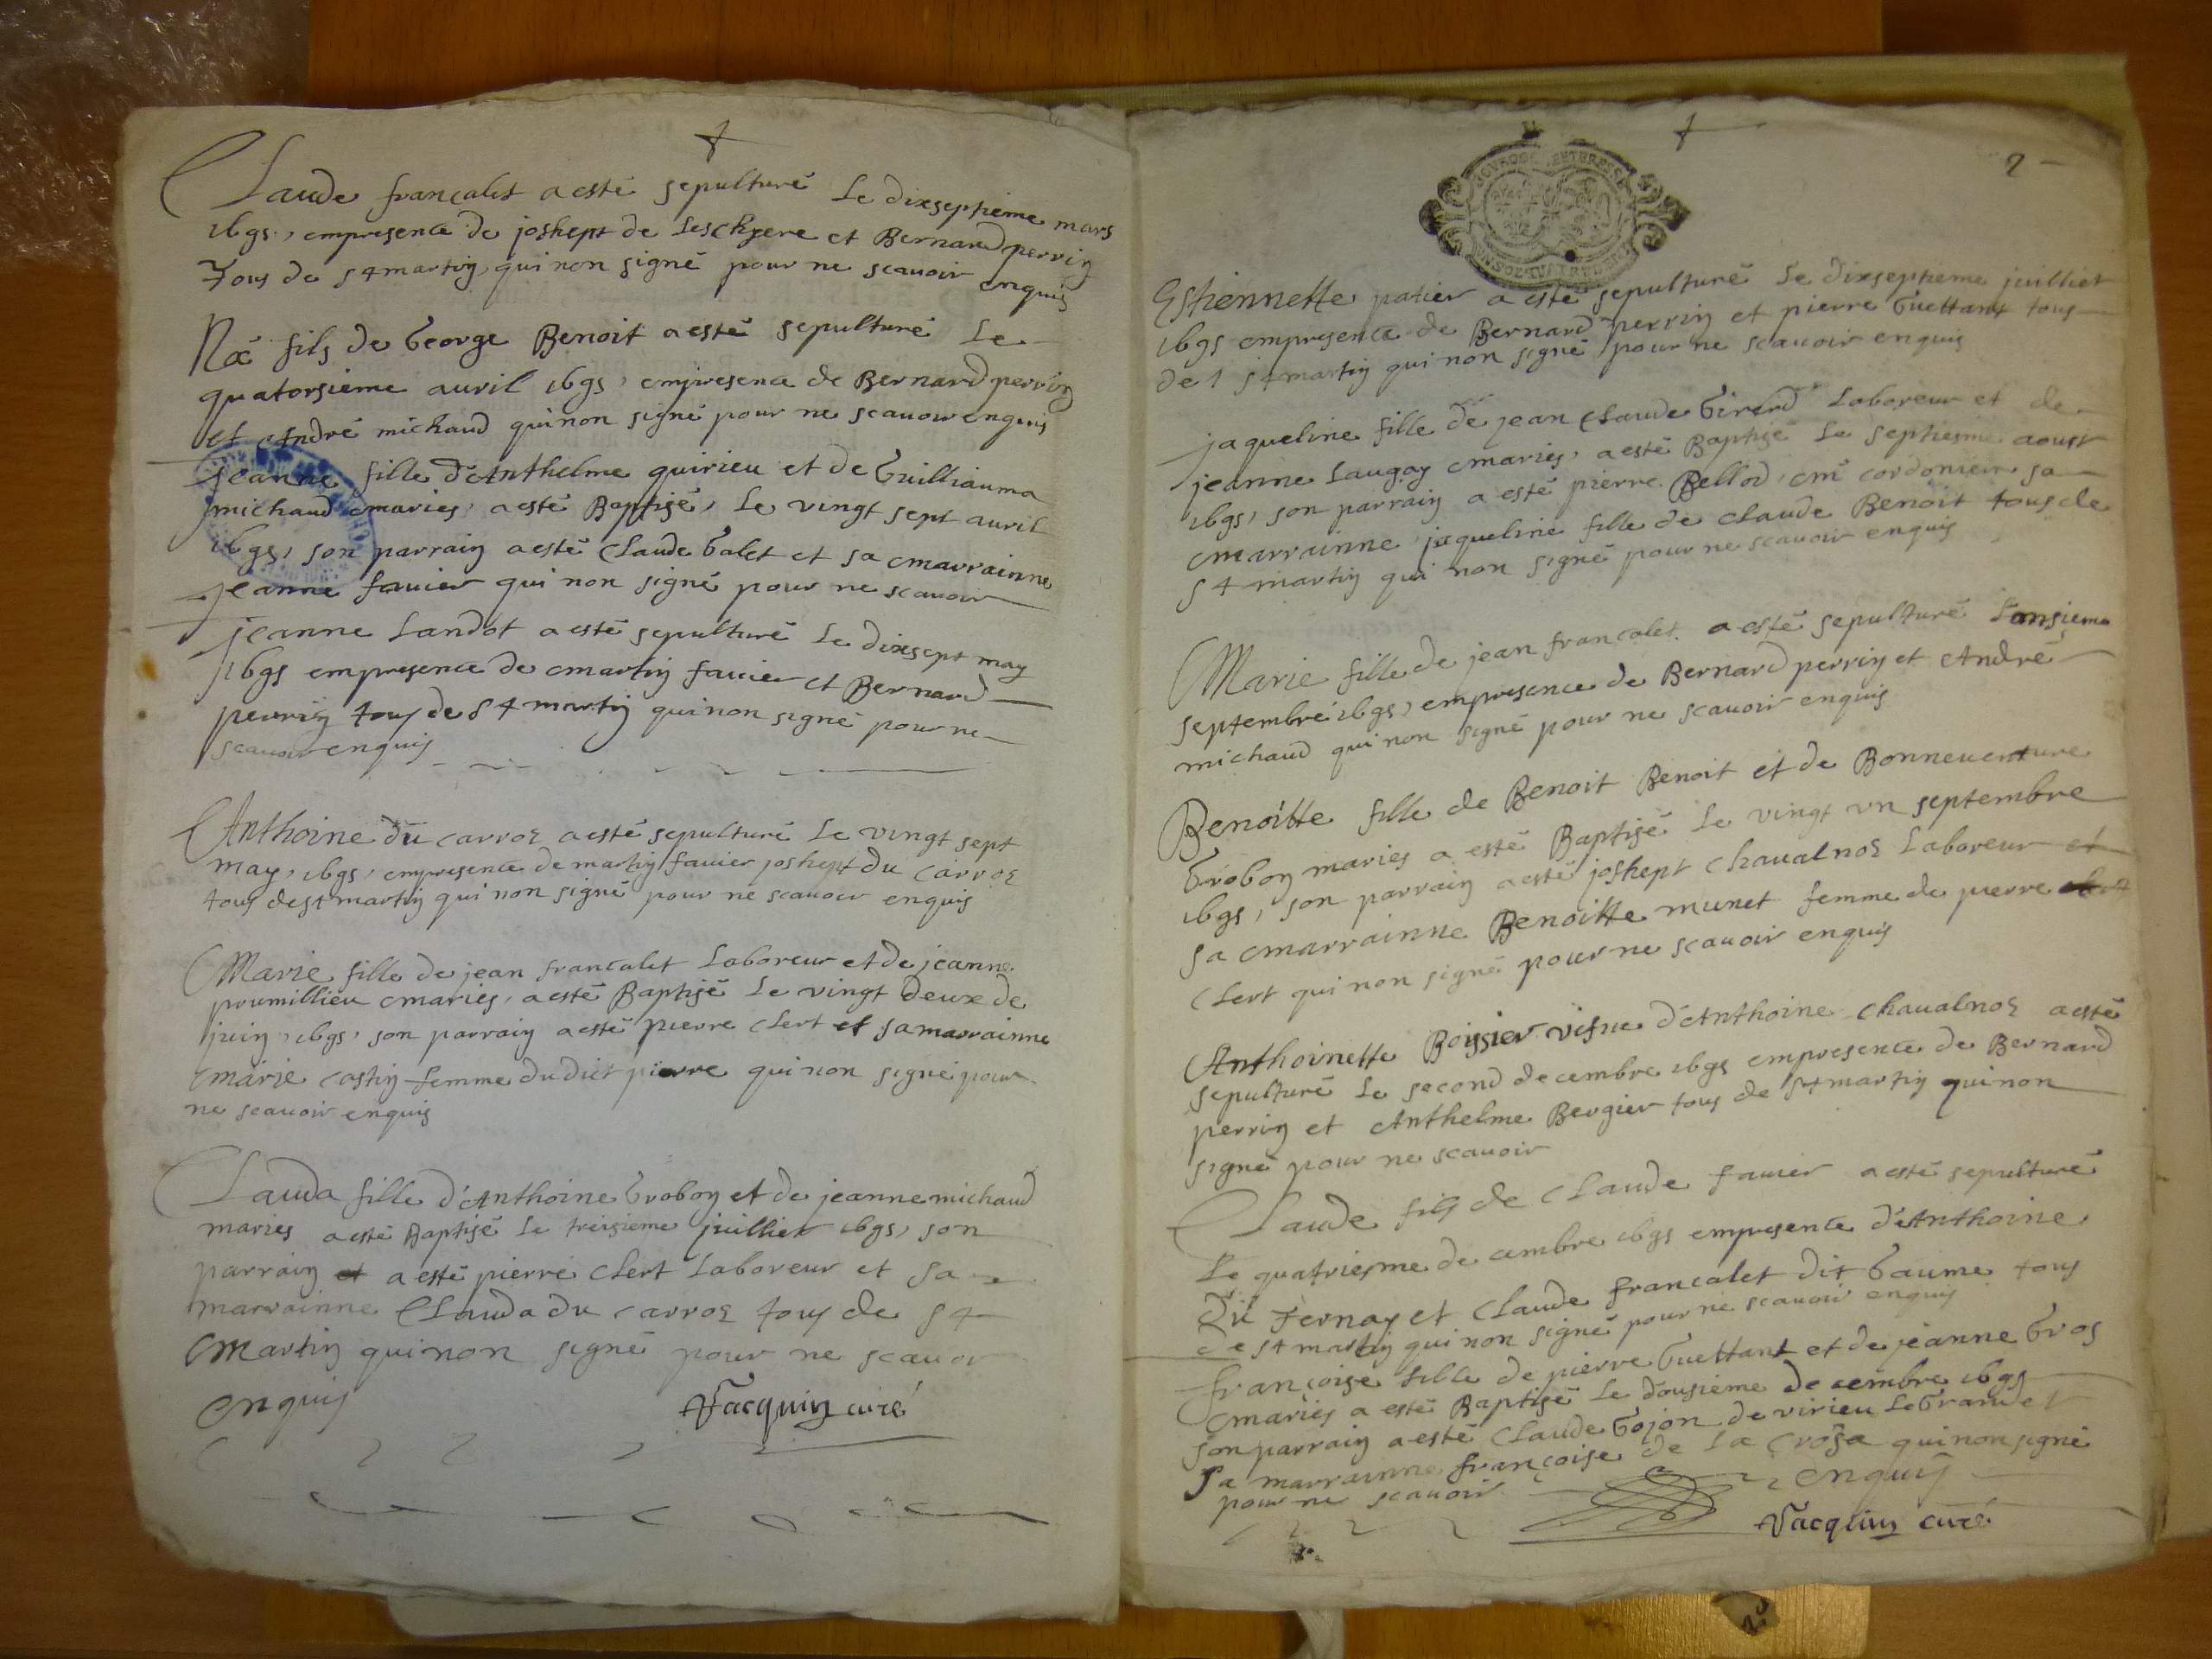 Claude francalet a esté sepulturé Le dixseptieme mars
1695, empresence de joshept de Leschyere et Bernard perrin
Tous de St martin, qui non signé pour ne scauoir enquis
Né fils de George Benoit a esté sepulturé Le
quatorsieme auril 1695, empresence de Bernard perrin
et André michaud qui non signé pour ne scauoir enquis
jeanne fille d'Anthelme quirieu et de Guilliauma
michaud maries, a esté Baptisé, Le vingt sept auril
1695, son parrain a esté Claude Galet et sa marrainne
jeanne fauier qui non signé pour ne scauoir
jeanne Landot a esté sepulturé Le dixsept may
1695 empresence de martin fauier et Bernard
perrin tous de St martin qui non signé pour ne
scauoir enquis
Anthoine du carroz a esté sepulturé Le vingt sept
may, 1695, empresence de martin fauier joshept du Carroz
tous de st martin qui non signé pour ne scauoir enquis
Marie fille de jean francalet Laboreur et de jeanne
proumillieu maries, a esté Baptisé Le vingt deux de
juin, 1695, son parrain a esté pierre Clert et sa marrainne
marie costin femme dudict pierre qui non signé pour
ne scauoir enquis
Clauda fille d'Anthoine Grobon et de jeanne michaud
maries a esté Baptisé Le treisieme juilliet 1695, son
parrain et a esté pierre Clert Laboreur et sa
marrainne Clauda du carroz tous de St
Martin qui non signé pour ne scauoir
enquis Jacquin curé
2
Esthennette patier a esté sepulturé Le dixseptieme juilliet
1695 empresence de Bernard perrin et pierre Guettant tous
de St martin qui non signé pour ne scauoir enquis
jaqueline fille de jean Claude Girerd Laboreur et de
jeanne Laugay maries, a esté Baptisé Le septiesme aoust
1695, son parrain a esté pierre Bellod, me cordonier sa
marrainne jaqueline fille de Claude Benoit tous de
St martin qui non signé pour ne scauoir enquis
Marie fille de jean francalet a esté sepulturé L'onsieme
septembre 1695, empresence de Bernard perrin et André
michaud qui non signé pour ne scauoir enquis
Benoitte fille de Benoit Benoit et de Bonneuenture
Grobon maries a esté Baptisé Le vingt vn septembre
1695, son parrain a esté joshept Chaualnoz Laboreur et
sa marrainne Benoitte munet femme de pierre
Clert qui non signé pour ne scauoir enquis
Anthoinette Boissier vesue d'Anthoine Chaualnoz a esté
sepulturé Le second decembre 1695 empresence de Bernard
perrin et Anthelme Bergier tous de St martin qui non
signé pour ne scauoir
Claude fils de Claude fauier a esté sepulturé
Le quatriesme decembre 1695 empresence d'Anthoine
du Fernay et Claude francalet dit Gaume tous
de St martin qui non signé pour ne scauoir enquis
françoise fille de pierre Guettant et de jeanne Gros
maries a esté Baptisé Le dousieme decembre 1695
son parrain a esté Claude Gojon de virieu Le Grand et
Sa marrainne françoise de La Croza qui non signé
pour ne scauoir enquis
Jacquin curé